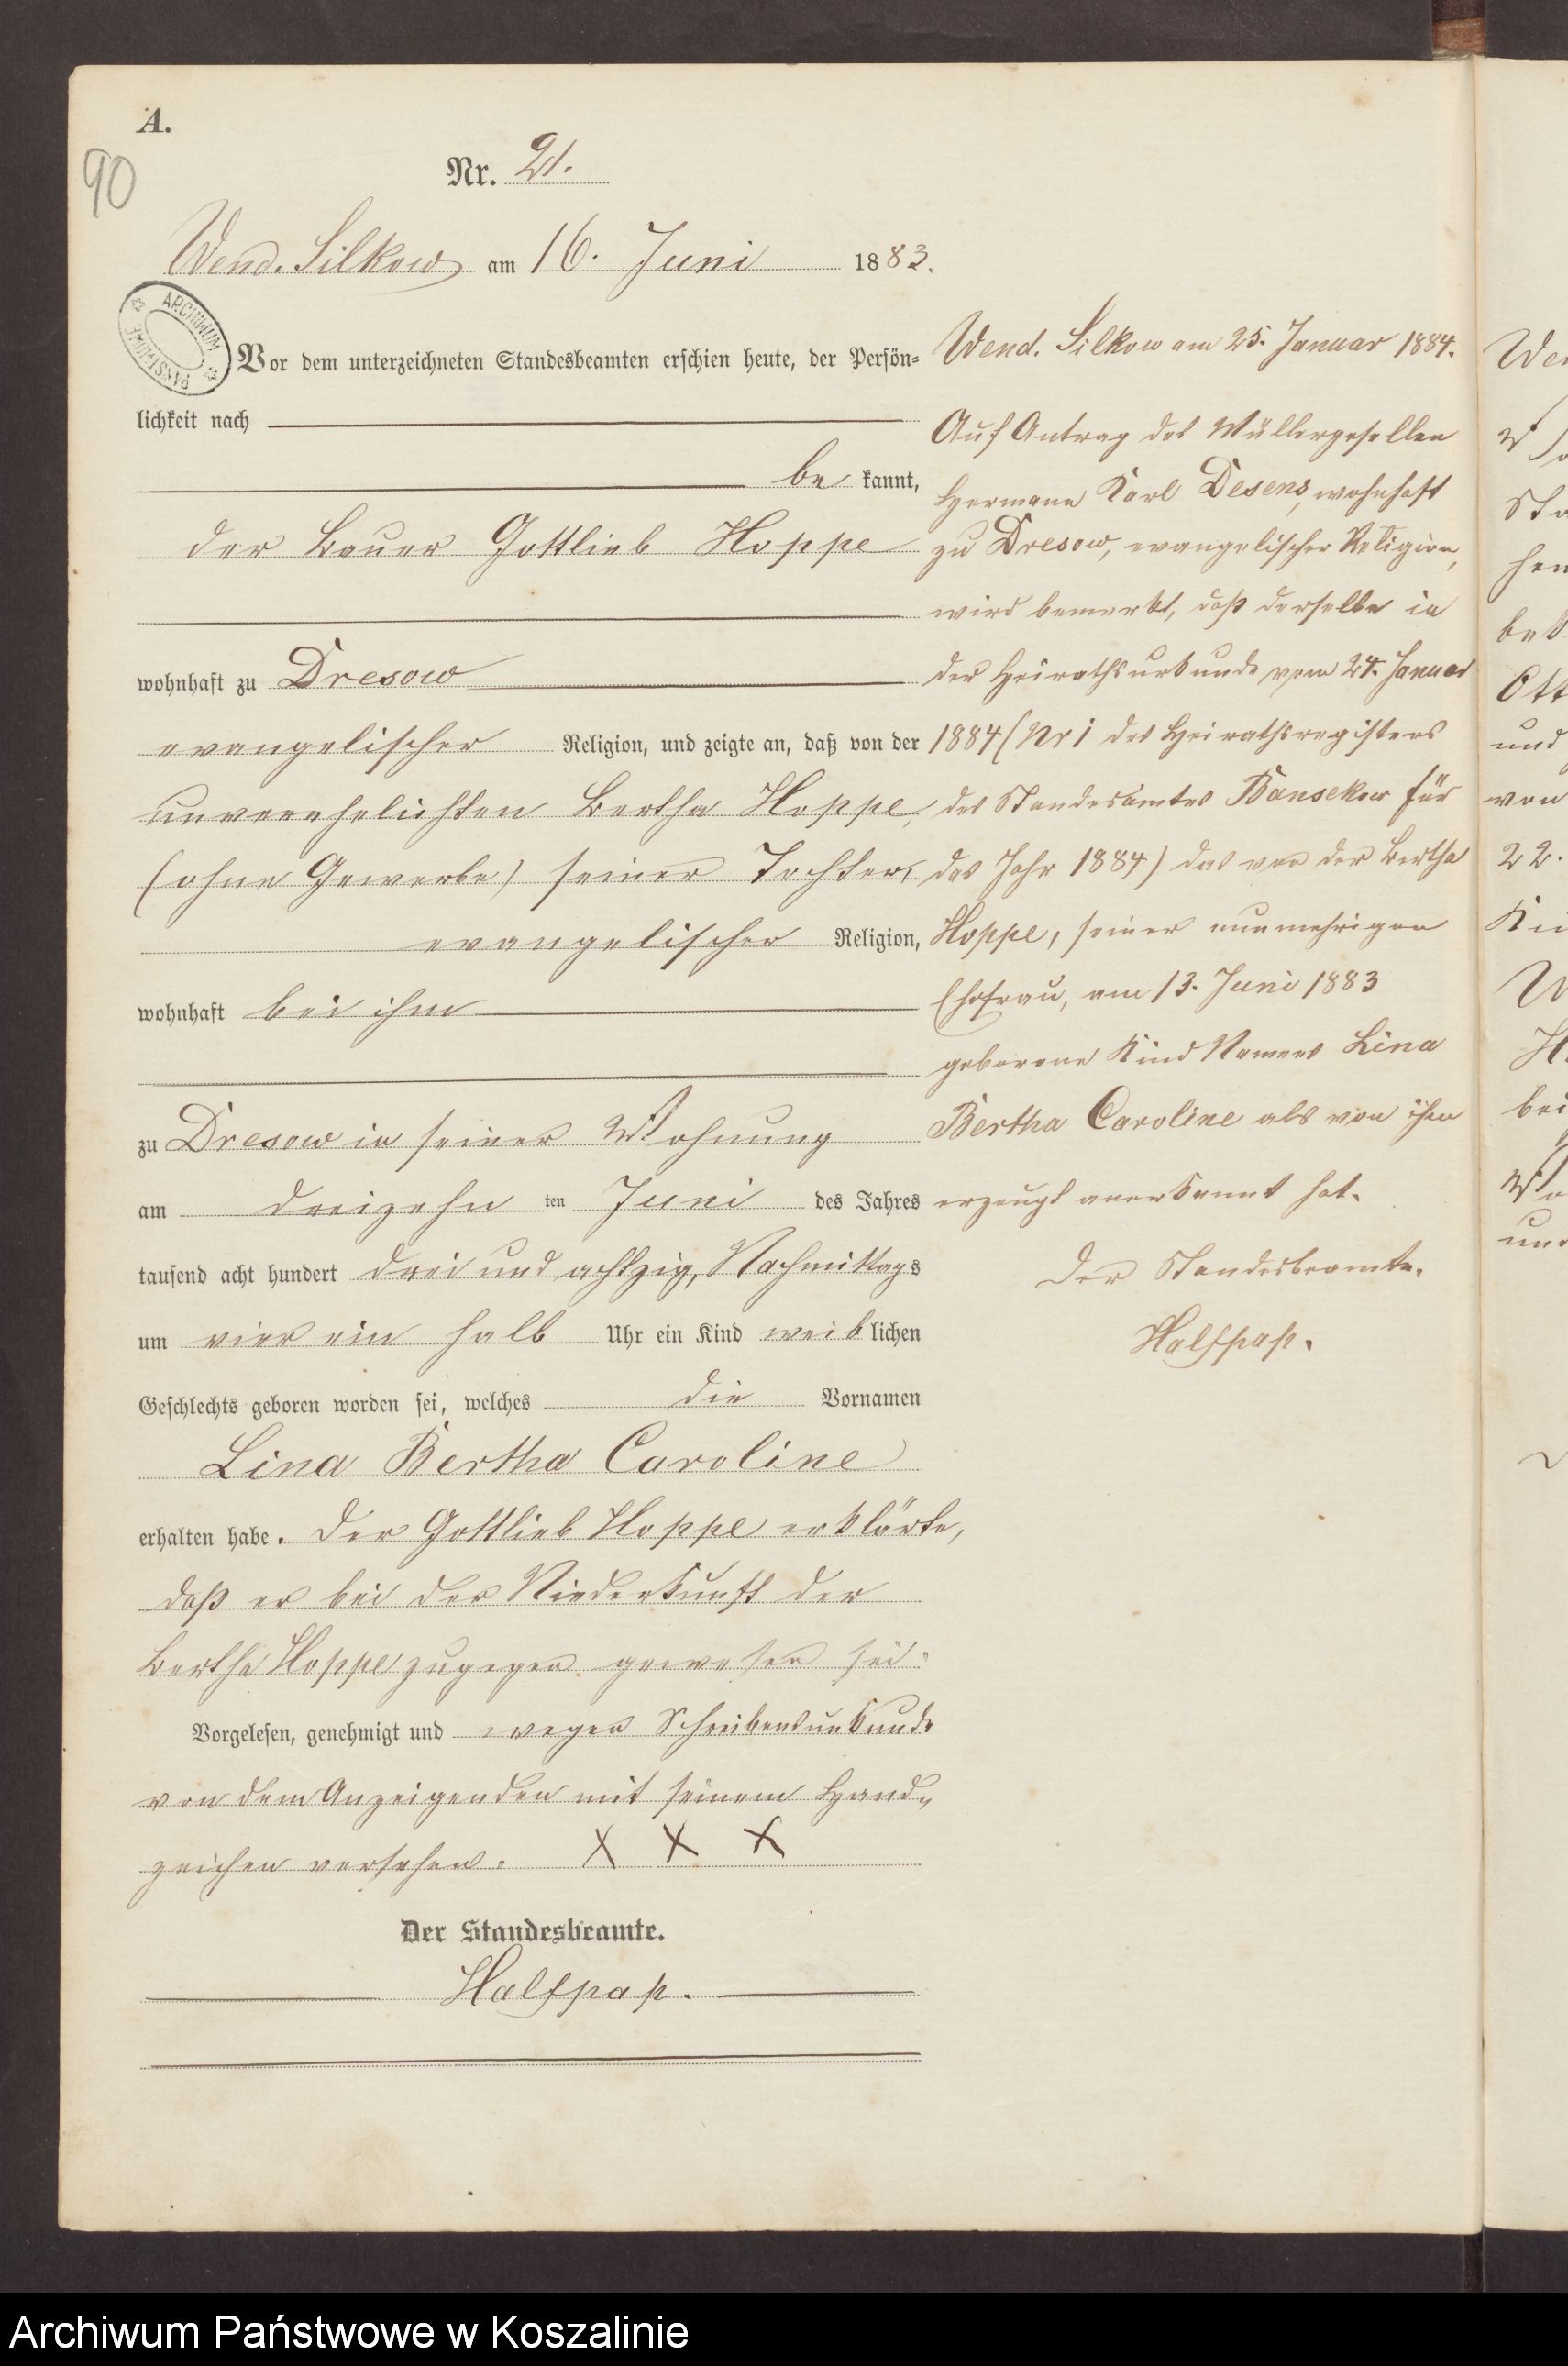 A.
90
Nr. 21.
Wend. Silkow am 16. Juni 1883.
ARCHIWUM PAŃSTWOWE
Vor dem unterzeichneten Standesbeamten erschien heute, der Persön-
lichkeit nach
be kannt,
der Bauer Gottlieb Hoppe
wohnhaft zu Dresow
evangelischer Religion, und zeigte an, daß von der
unverehelichten Bertha Hoppe,
(ohne Gewerbe) seiner Tochter,
evangelischer Religion,
wohnhaft bei ihm
zu Dresow in seiner Wohnung
am dreizehn ten Juni des Jahres
tausend acht hundert drei und achtzig, Nachmittags
um vier ein halb Uhr ein Kind weib lichen
Geschlechts geboren worden sei, welches die Vornamen
Lina Bertha Caroline
erhalten habe. Der Gottlieb Hoppe erklärte,
daß er bei der Niederkunft der
Bertha Hoppe zugegen gewesen sei.
Vorgelesen, genehmigt und wegen Schreibensunkunde
von dem Anzeigenden mit seinem Hand-
zeichen versehen. X X X
Der Standesbeamte.
Halfpap.
Wend. Silkow am 25. Januar 1884.
Auf Antrag des Müllergesellen
Hermann Karl Desens, wohnhaft
zu Dresow, evangelischer Religion,
wird bemerkt, daß derselbe in
der Heirathsurkunde vom 24. Januar
1884 (Nr 1 des Heirathsregisters
des Standesamtes Bansekow für
das Jahr 1884) das von der Bertha
Hoppe, seiner nunmehrigen
Ehefrau, am 13. Juni 1883
geborene Kind Namens Lina
Bertha Caroline als von ihm
erzeugt anerkannt hat.
Der Standesbeamte.
Halfpap.
und
von
22.
bei
Archiwum Państwowe w Koszalinie